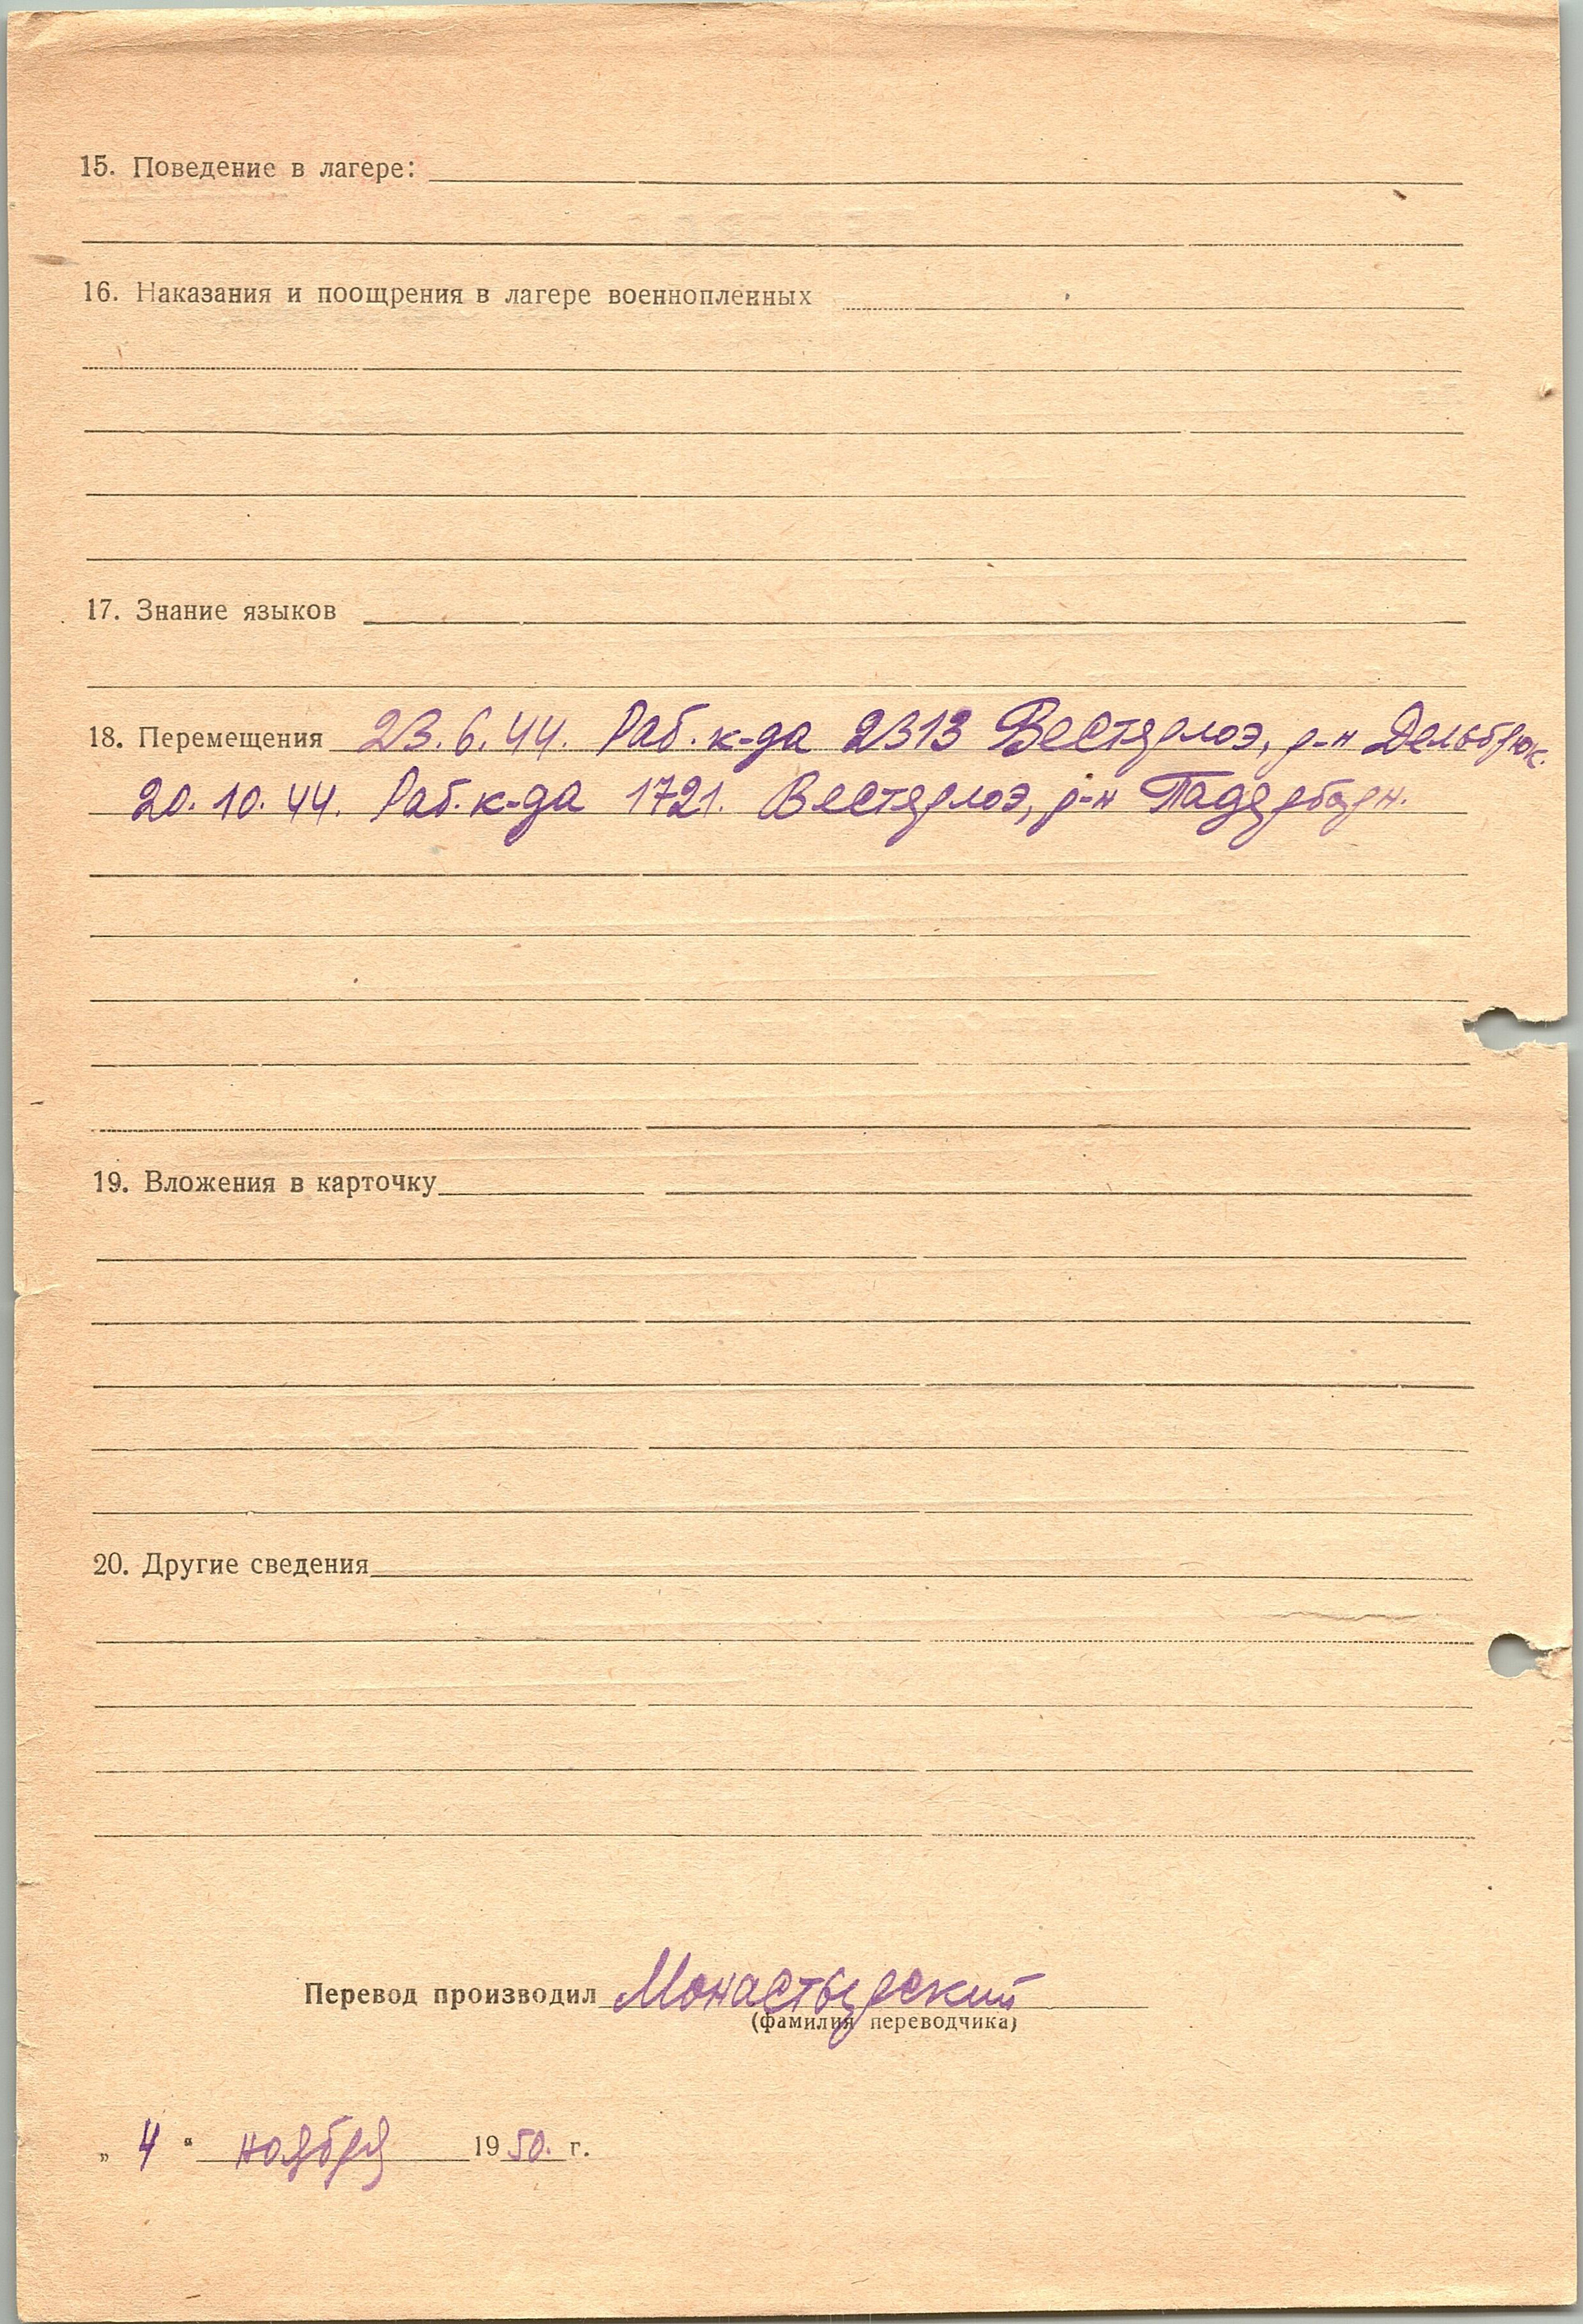 15. Поведение в лагере:
16. Наказания и поощрения в лагере военнопленных
17. Знание языков
18. Перемещения 23.6.44. Раб. к-да 2313 Вестерлоэ, р-н Дельбрюк.
20.10.44. Раб. к-да 1721. Вестерлоэ, р-н Падерборн.
19. Вложения в карточку
20. Другие сведения
Перевод производил Монастырский
(фамилия переводчика)
„ 4 “ ноября 1950. г.